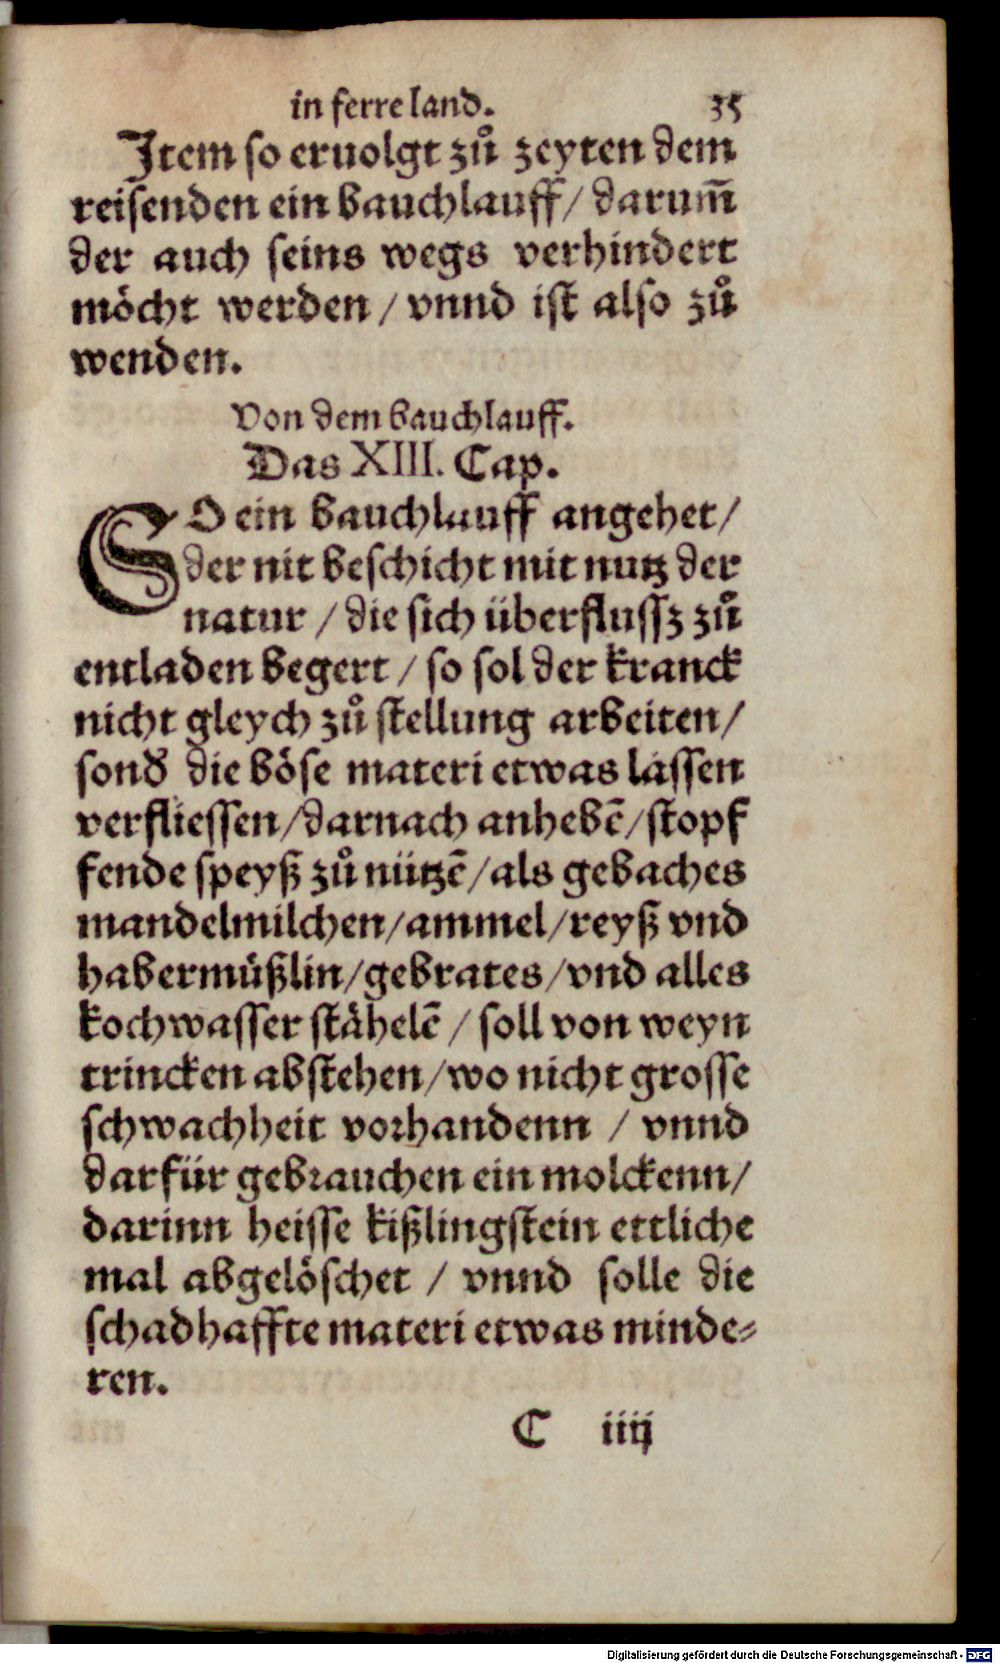 in ferre land. 35
Item so eruolgt zů zeyten dem
reisenden ein bauchlauff/ darum̃
der auch seins wegs verhindert
möcht werden / vnnd ist also zů
wenden.
Von dem bauchlauff.
Das XIII. Cap.
SO ein bauchlauff angehet/
der nit beschicht mit nutz der
natur / die sich überflussz zů
entladen begert / so sol der kranck
nicht gleych zů stellung arbeiten/
sond̕ die böse materi etwas lassen
verfliessen/darnach anhebẽ/stopf
fende speyß zů nützẽ/als gebaches
mandelmilchen/ammel/reyß vnd
habermüßlin/gebrates/vnd alles
kochwasser stähelẽ / soll von weyn
trincken abstehen/wo nicht grosse
schwachheit vorhandenn / vnnd
darfür gebrauchen ein molckenn/
darinn heisse kißlingstein ettliche
mal abgelöschet / vnnd solle die
schadhaffte materi etwas minde⸗
ren.
C iiij
Digitalisierung gefördert durch die Deutsche Forschungsgemeinschaft - DFG